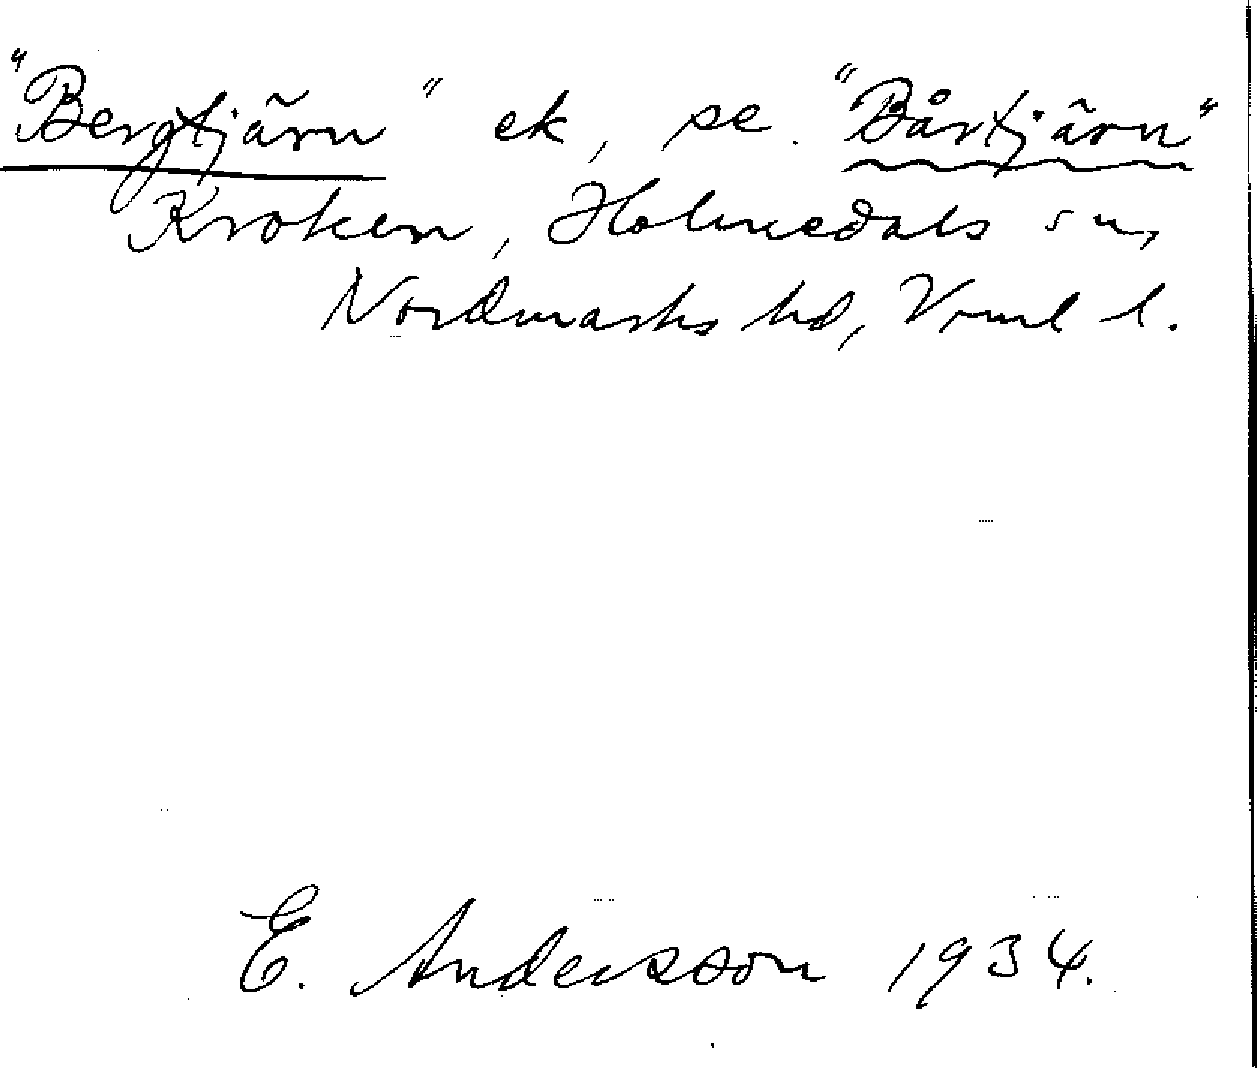 "Bergtjärn" ek, se. "Bårtjärn"
Kroken, Holmedals sn,
Nordmarks hd, Vrml l.
E. Andersson 1934.